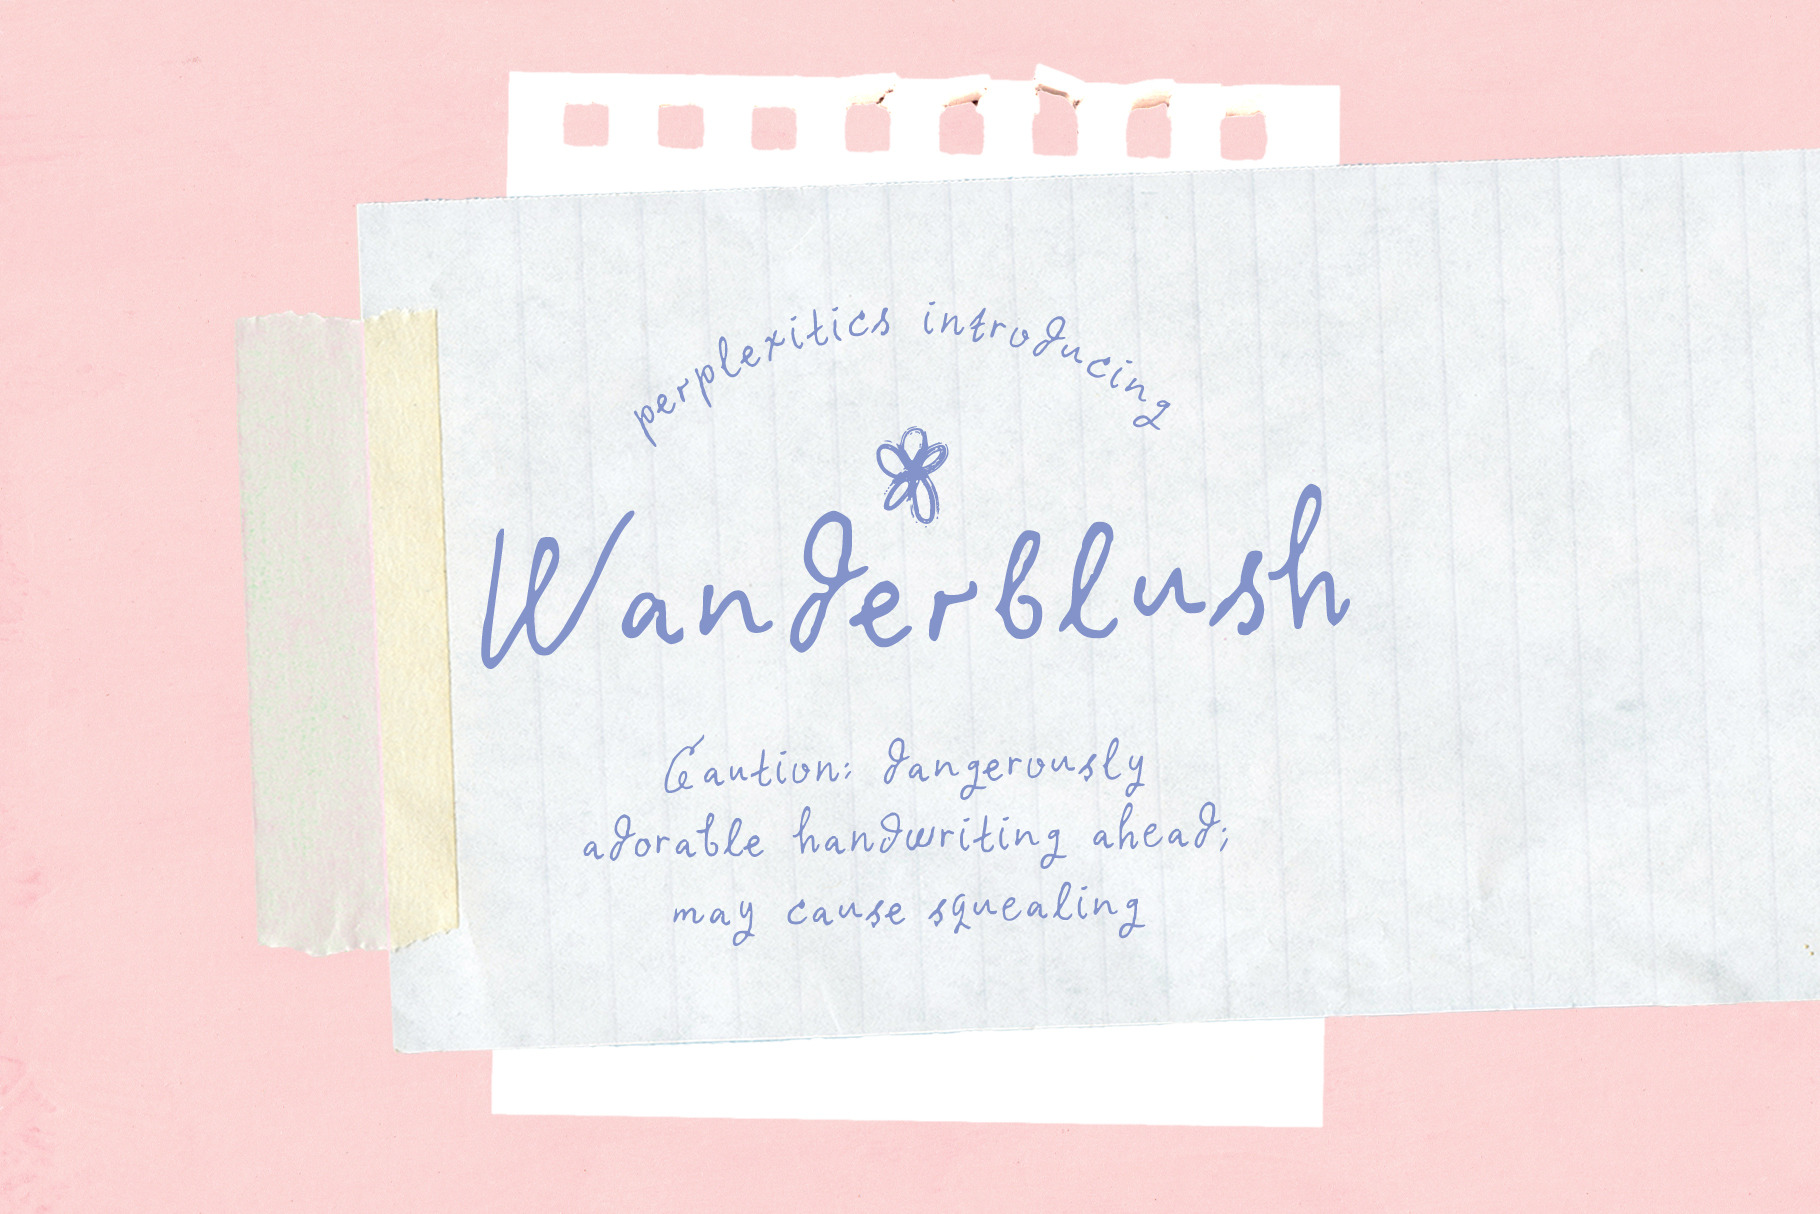 perplexitics introducing
Wanderblush
Caution: dangerously
adorable handwriting ahead;
may cause squealing